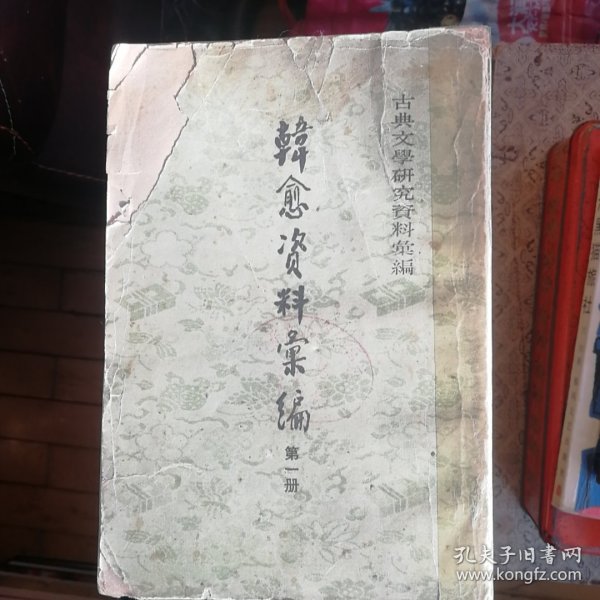 古典文學研究資料彙編
韓愈资料彙编
第一册
孔夫子旧书网
www.kongfz.com